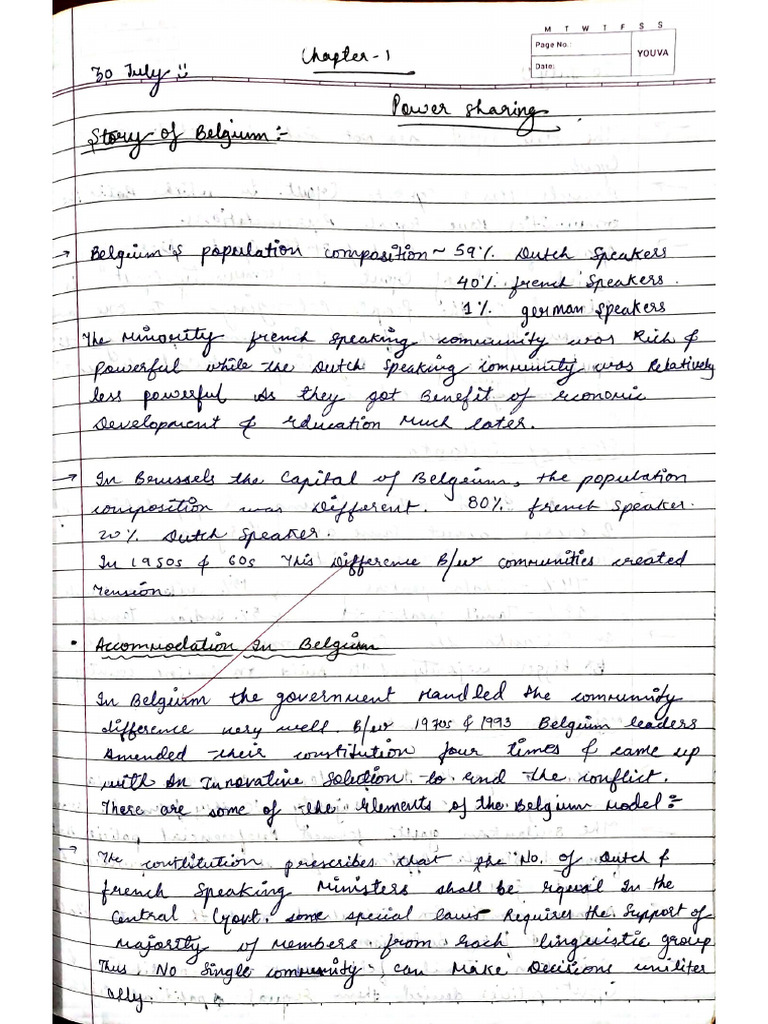 M T W T F S S
Page No.:
YOUVA
Date:
30 July
Chapter-1
Power Sharing
Story of Belgium:-
→ Belgeium's population composition ~ 59% Dutch Speakers
40% french Speakers.
1% german Speakers
The Minority french speaking community was Rich &
Powerful while the Dutch Speaking community was Relatively
less powerful As they got Benefit of economic
Development & Education Much later.
→ In Brussels the Capital of Belgeium, the population
composition was Different. 80% french Speaker.
20% Dutch Speaker.
In 1950s & 60s This Difference B/w communities created
Tension.
• Accommodation In Belgium
In Belgium the government Handled The community
difference very well. B/w 1970s & 1993 Belgium leaders
Amended their constitution four times & came up
with An Innovative Solution to end the conflict.
These are some of the Elements of the Belgium Model:-
→ The constitution prescribes that the No. of Dutch &
french Speaking Ministers shall be Equal In the
Central Govt. some special laws Requires the Support of
majority of Members from Each linguistic group
Thus No Single community can Make Decisions uniliter
ally.